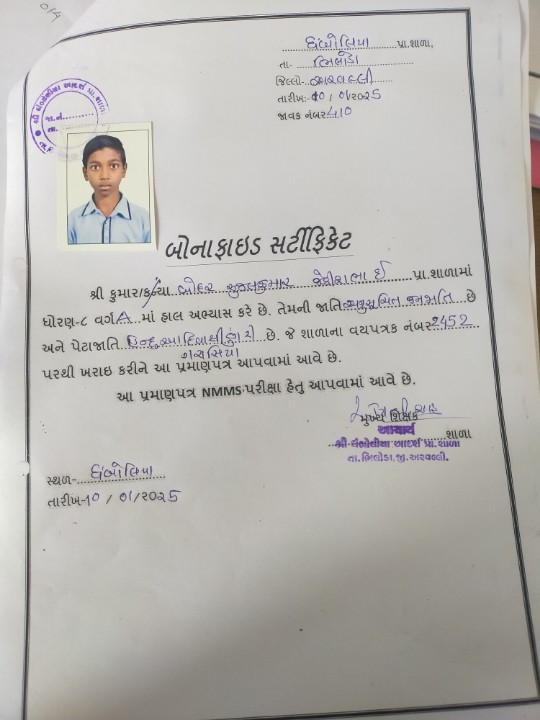 ધંબોલિયા પ્રા.શાળા,
તા- ભિલોડા
જિલ્લો- અરવલ્લી
તારીખ:- 10 / 01/૨૦૨5
જાવક નંબર 410
શ્રી ધંબોલીયા આદર્શ પ્રા. શાળા
જા.નં.
તા.
બોનાફાઇડ સર્ટીફિકેટ
શ્રી કુમાર/કન્યા સુજલકુમાર પ્રા.શાળામાં
ધોરણ-૮ વર્ગ A માં હાલ અભ્યાસ કરે છે. તેમની જાતિ અનુસુચિત જનજાતિ છે
અને પેટાજાતિ હિન્દુ આદિવાસી ડુંગરી છે. જે શાળાના વયપત્રક નંબર ૨452
ગરાસિયા
પરથી ખરાઇ કરીને આ પ્રમાણપત્ર આપવામાં આવે છે.
આ પ્રમાણપત્ર NMMS પરીક્ષા હેતુ આપવામાં આવે છે.
મુખ્ય શિક્ષક
આચાર્ય
શાળા
શ્રી ધંબોલીયા આદર્શ પ્રા. શાળા
તા. ભિલોડા, જી. અરવલ્લી.
સ્થળ- ધંબોલિયા
તારીખ-10 / 01/૨૦૨5